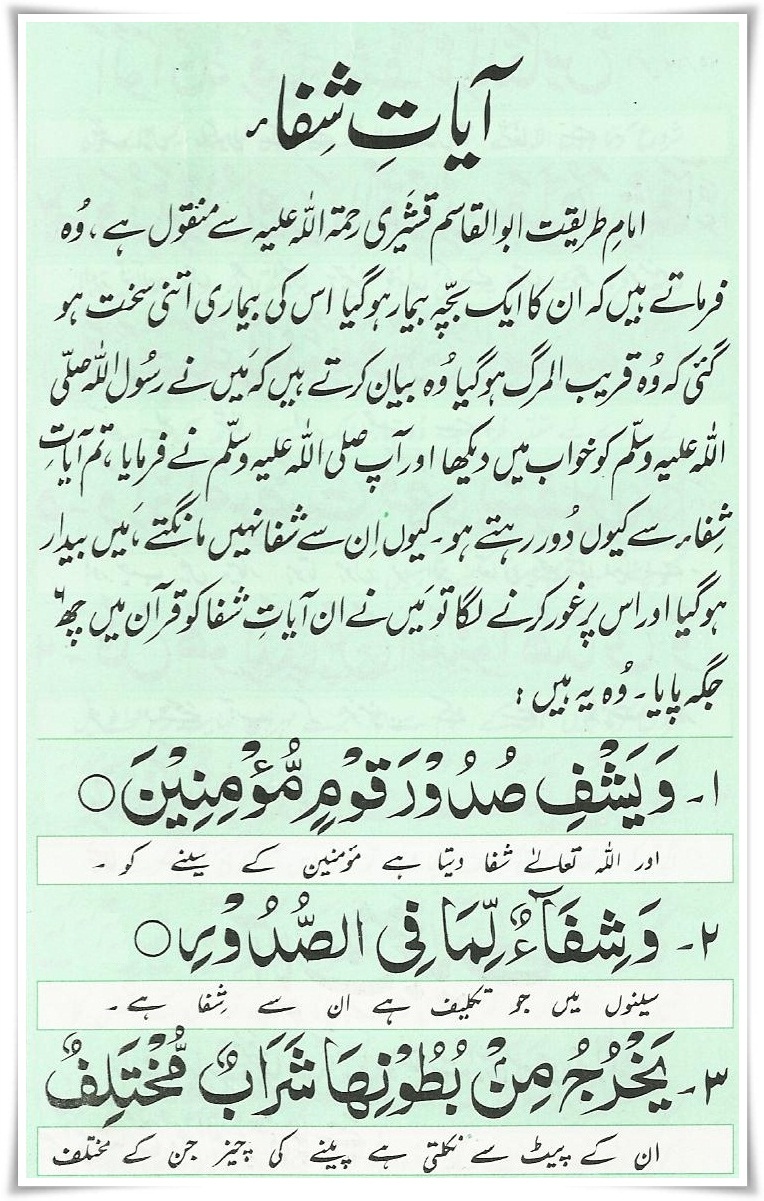 آیاتِ شِفاء
امامِ طریقت ابوالقاسم قشیری رحمۃ اللہ علیہ سے منقول ہے، وُہ
فرماتے ہیں کہ ان کا ایک بچّہ بیمار ہوگیا اس کی بیماری اتنی سخت ہو
گئی کہ وُہ قریب المرگ ہوگیا وُہ بیان کرتے ہیں کہ مَیں نے رسُول اللہ صلّی
اللہ علیہ وسلّم کو خواب میں دیکھا اور آپ صلی اللہ علیہ وسلّم نے فرمایا، تم آیاتِ
شِفاء سے کیوں دُور رہتے ہو۔ کیوں اِن سے شفا نہیں مانگتے، مَیں بیدار
ہوگیا اور اس پر غور کرنے لگا تو مَیں نے ان آیاتِ شفا کو قرآن میں چھ ۶
جگہ پایا۔ وُہ یہ ہیں :
۱۔ وَيَشْفِ صُدُوْرَ قَوْمٍ مُّؤْمِنِيْنَ ○
اور اللہ تعالےٰ شفا دیتا ہے مؤمنین کے سینے کو ۔
۲۔ وَشِفَآءٌ لِّمَا فِى الصُّدُوْرِ ○
سینوں میں جو تکلیف ہے ان سے شِفا ہے۔
۳۔ يَخْرُجُ مِنْۢ بُطُوْنِهَا شَرَابٌ مُّخْتَلِفٌ
ان کے پیٹ سے نکلتی ہے پینے کی چیز جن کے مختلف